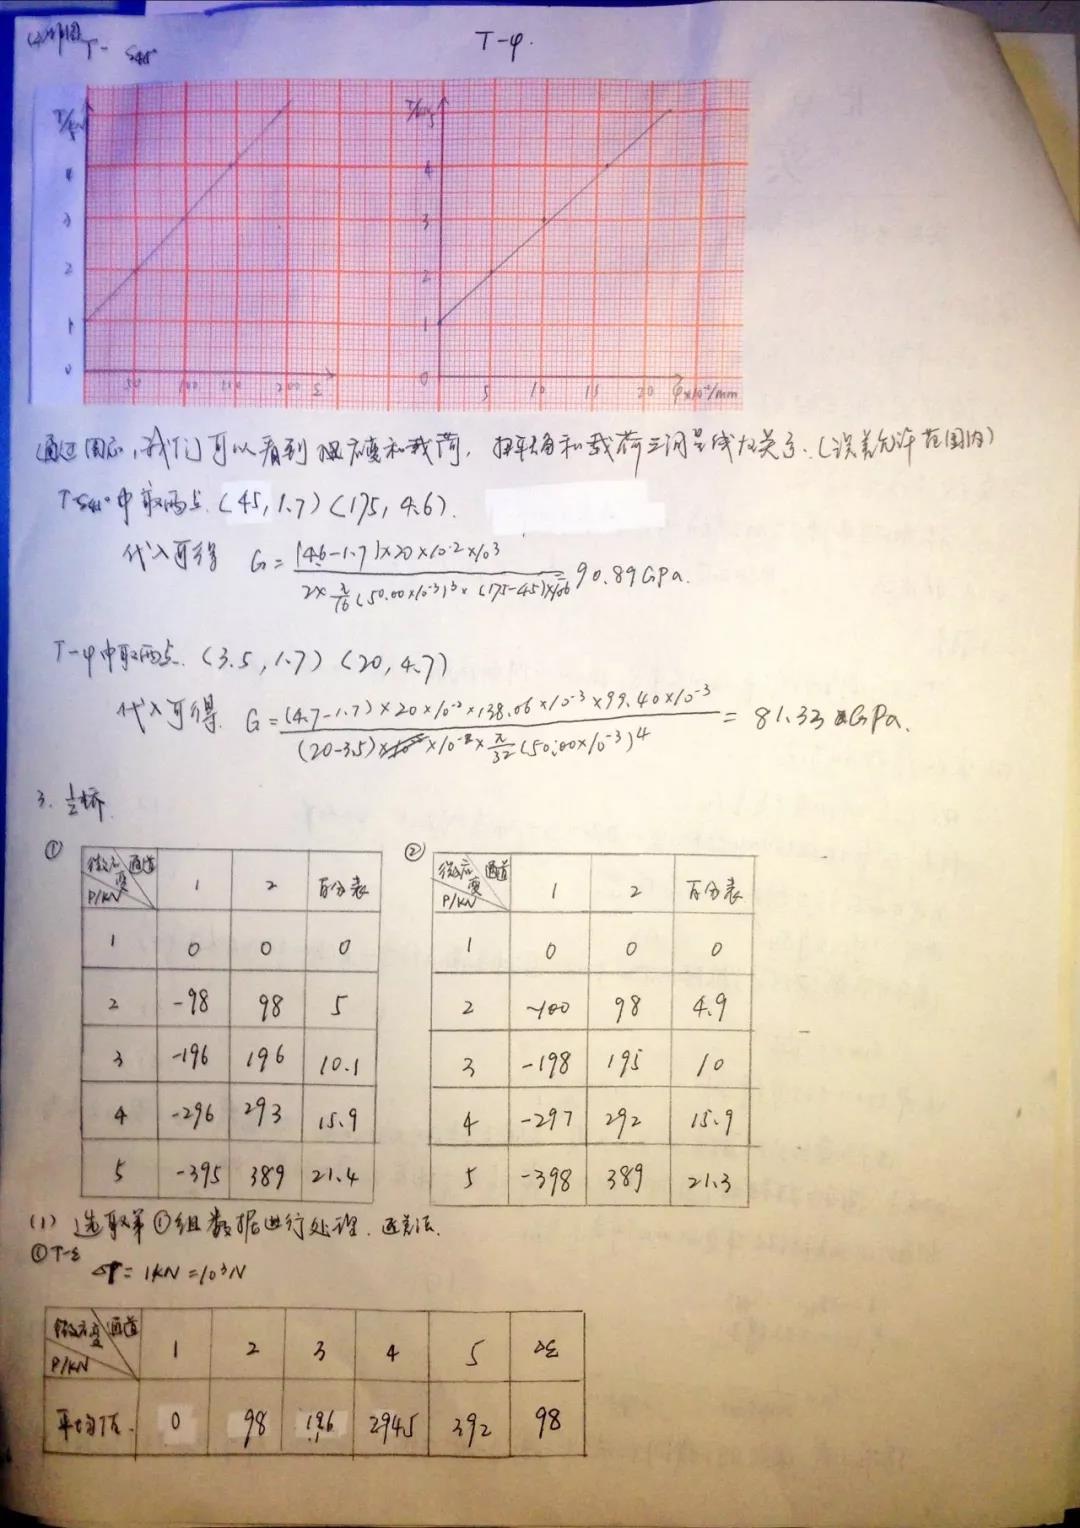 (2)作图
T-ε45°
T-φ.
T/kN
4
3
2
1
0
50 100 150 200 ε
T/kN
5
4
3
2
1
0
5 10 15 20 φ×10⁻²/mm
通过图示,我们可以看到 应变和载荷,扭转角和载荷之间呈线性关系.(误差允许范围内)
T-ε45°中取两点.(45,1.7)(175,4.6).
代入可得 G= (4.6-1.7)×20×10⁻²×10³ / 2×π/16(50.00×10⁻³)³×(175-45)×10⁻⁶ = 90.89GPa.
T-φ中取两点.(3.5,1.7)(20,4.7)
代入可得. G= (4.7-1.7)×20×10⁻²×138.06×10⁻³×99.40×10⁻³ / (20-3.5)×10⁻²×π/32(50.00×10⁻³)⁴ = 81.33 GPa.
3. ½桥.
①
微应变 通道 P/KN 1 2 百分表
1 0 0 0
2 -98 98 5
3 -196 196 10.1
4 -296 293 15.9
5 -395 389 21.4
②
微应变 通道 P/KN 1 2 百分表
1 0 0 0
2 -100 98 4.9
3 -198 195 10
4 -297 292 15.9
5 -398 389 21.3
(1) 选取第①组数据进行处理.逐差法.
①T-ε
ΔP=1KN=10³N
微应变 通道 P/KN 1 2 3 4 5 Δε
平均值. 0 98 196 294.5 392 98